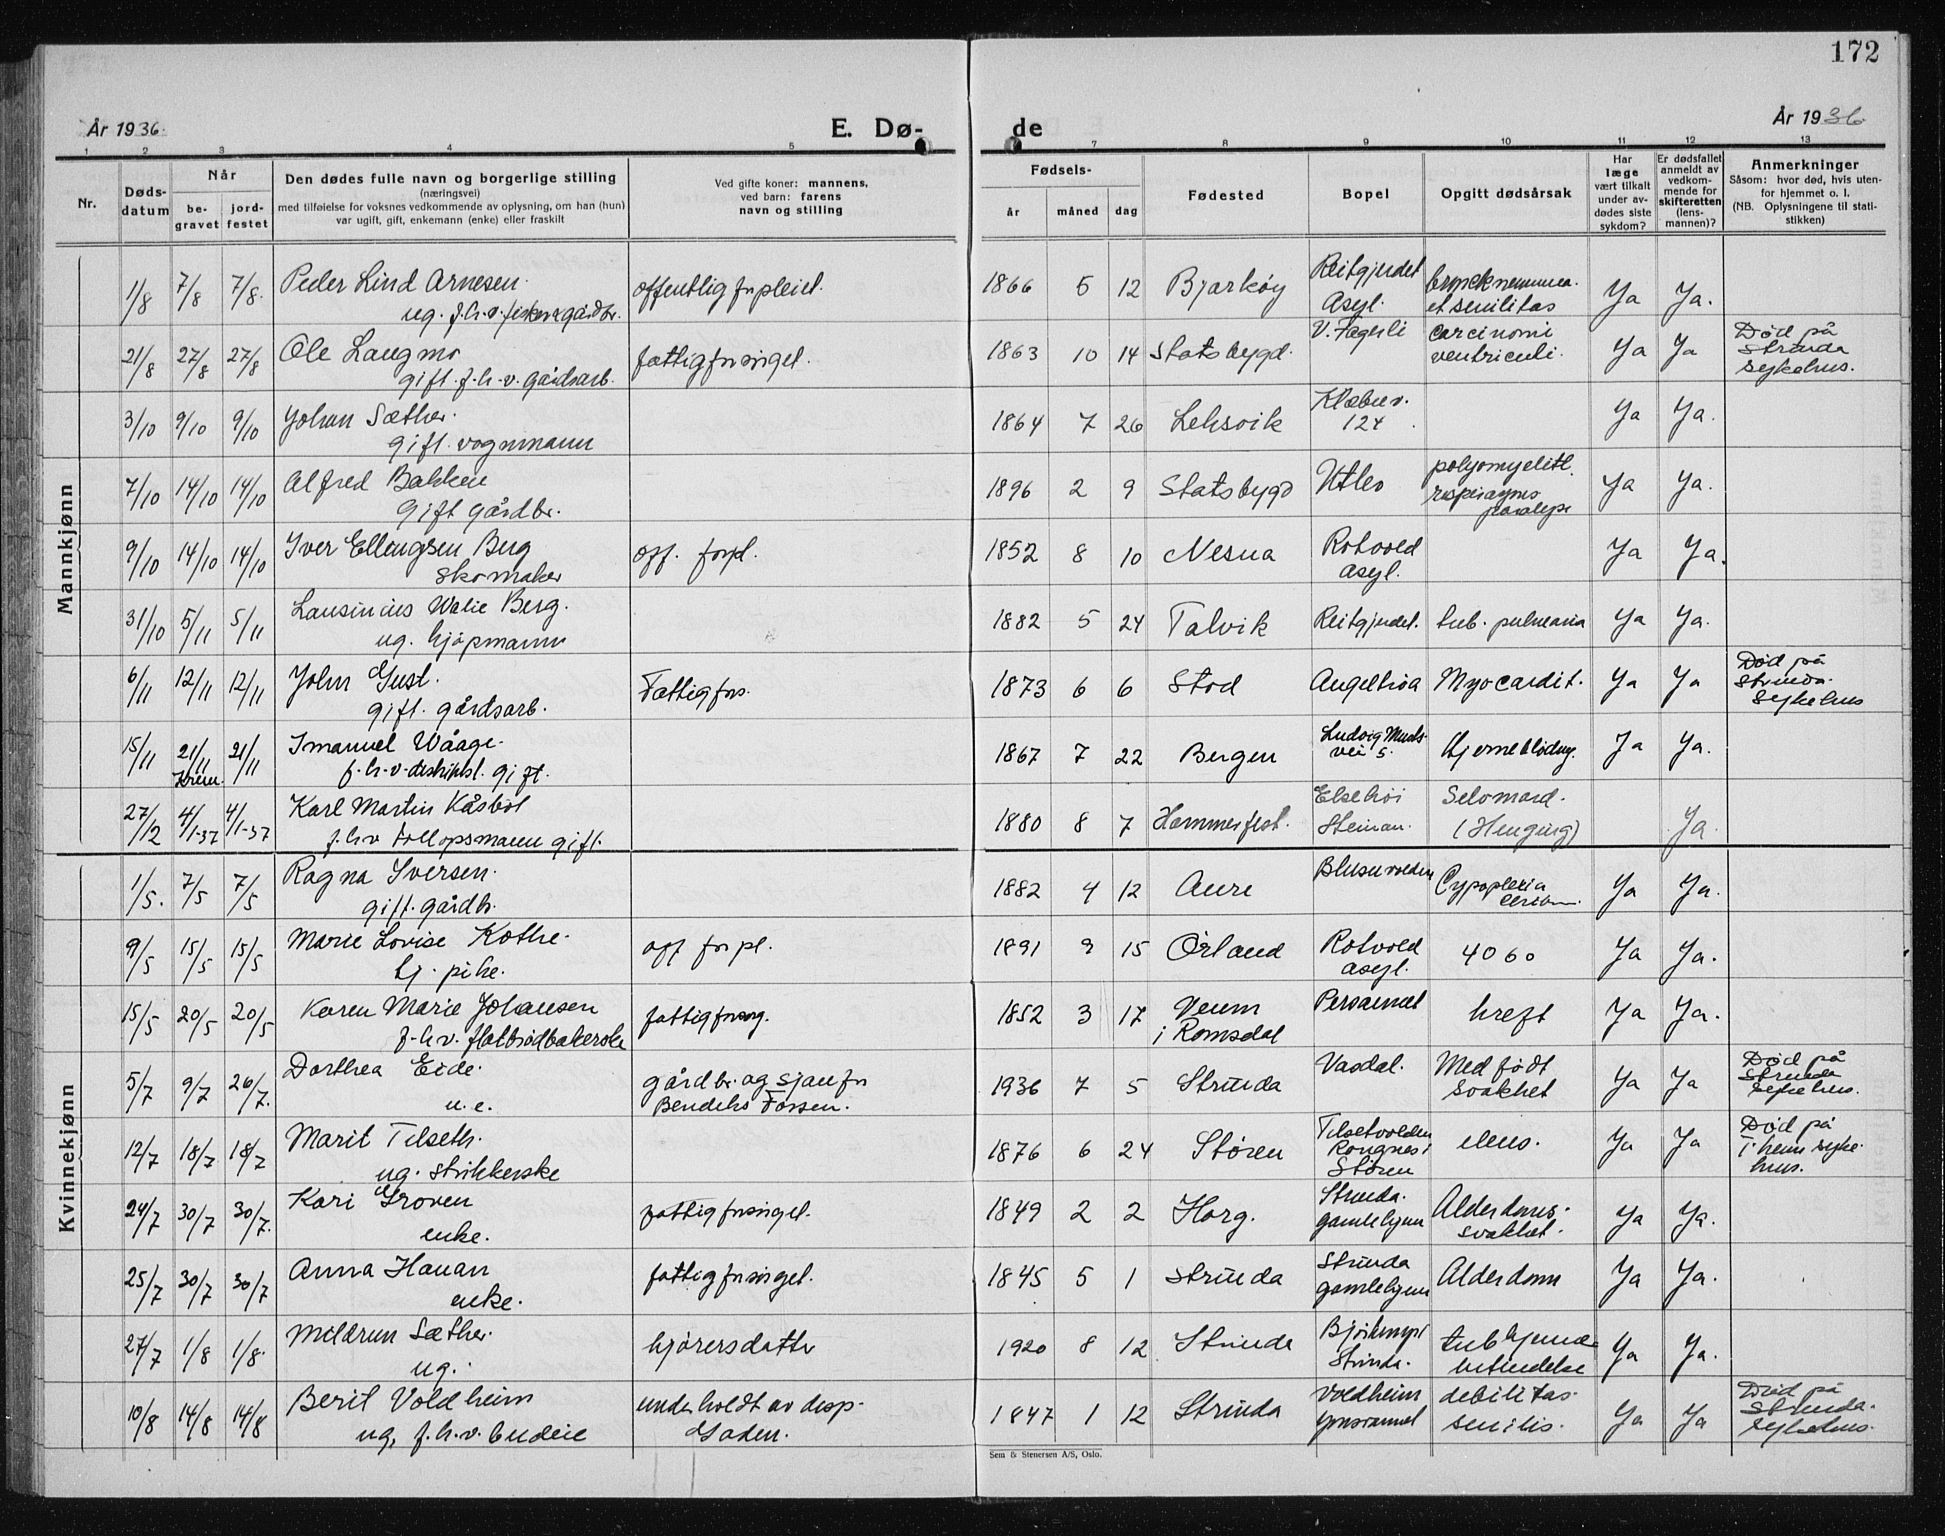 172
År 1936.
E. Dø-
de
År 1936.
1 2 3 4 5 7 8 9 10 11 12 13
Nr.
Døds-
datum
Når
be-
gravet
jord-
festet
Den dødes fulle navn og borgerlige stilling
(næringsvei)
med tilføielse for voksnes vedkommende av oplysning, om han (hun)
var ugift, gift, enkemann (enke) eller fraskilt
Ved gifte koner: mannens,
ved barn: farens
navn og stilling
Fødsels-
år måned dag
Fødested
Bopel
Opgitt dødsårsak
Har
læge
vært tilkalt
under av-
dødes siste
sykdom?
Er dødsfallet
anmeldt av
vedkom-
mende for
skifteretten
(lens-
mannen)?
Anmerkninger
Såsom: hvor død, hvis uten-
for hjemmet o. l.
(NB. Oplysningene til stati-
stikken)
Mannkjønn
1/8 7/8 7/8. Peder Lind Arnesen. offentlig forpleiet. 1866 5 12 Bjarkøy Reitgjerdet Ja Ja.
ug. f.h.v. fisker & gårdbr. Asyl. et senilitas
21/8 27/8 27/8 Ole Langmo fattigforsørget. 1863 10 14 Statsbygd. V. Fagerli carcinomi Ja Ja Død på
gift. f.h.v. gårdsarb. ventriculi. Strinda
sykehus.
3/10 9/10 9/10 Johan Sæther. 1864 7 26 Leksvik Klæbuv. Ja Ja.
gift. vognmann 124.
7/10 14/10 14/10 Alfred Bakken 1896 2 9 Statsbygd Utleo polyomyelitt. Ja Ja.
gift gårdbr.
9/10 14/10 14/10 Iver Ellingsen Berg off. forpl. 1852 8 10 Nesna Rotvold Ja Ja.
skomaker asyl.
31/10 5/11 5/11 Berg. 1882 5 24 Talvik Reitgjerdet. tub. pulmonia Ja Ja.
ug. kjøpmann
6/11 12/11 12/11 John Gust. Fattigfors. 1873 6 6 Stod Angeltrøa Myocardit. Ja Ja Død på
gift. gårdsarb. Strinda.
sykehus
15/11 21/11 21/11 Imanuel Wåage. 1867 7 22 Bergen Ludvig Munks- hjerneblødng. Ja Ja.
Krem. f.h.v. gift. vei 5.
27/12 4/1-37 4/1-37 Karl Martin Kåsbøl 1880 8 7 Hammerfest. Elsehøi Selvmord. Ja.
f.h.v tollopsmann gift. Steinan. (Henging)
Kvinnekjønn
1/5. 7/5 7/5 Ragna Iversen. 1882 4 12 Aure Blusuvolden Ja Ja.
gift. gårdb.
9/5 15/5 15/5 Marie Lovise Kothe. off forpl. 1891 9 15 Ørland Rotvold 4060 Ja Ja.
tj. pike. asyl.
15/5 20/5 20/5 Karen Marie Johansen fattigforsorg. 1852 3 17 Veum Persaunet kreft Ja Ja.
f.h.v. flatbrødbakerske i Romsdal
5/7 9/7 26/7. Dorthea Eide. gårdbr. og sjaufør 1936 7 5 Strinda Vasdal. Medfødt Ja Ja Død på
u.e. Bendiks Forsen. svakhet Strinda
sykehus.
12/7 18/7 18/7 Marit Tilseth. 1876 6 24 Støren Tilsetvolden ileus. Ja Ja Død på
ug. strikkerske Rongnes i T.heim syke-
Støren hus.
24/7 30/7 30/7. Kari Groven fattigforsørget. 1849 2 2 Horg. Strinda. Alderdoms- Ja Ja.
enke. gamlehjem svakhet.
25/7 30/7 30/7 Anna Hanan fattigforsørget. 1845 5 1 Strinda Strinda Alderdom Ja Ja.
enke. gamlehjem
27/7 1/8 1/8. Mildrun Sæther. kjørersdatter 1920 8 12 Strinda tub hjerne- Ja Ja.
ug. Strinda. betendelse
10/8 14/8 14/8 Beril Voldheim underholdt av disp. 1847 1 12 Strinda Voldheim debilitas. Ja Ja Død på
ug, f.h.v. budeie Gaden. senilis. Strinda.
sykehus.
Sem & Stenersen A/S, Oslo.